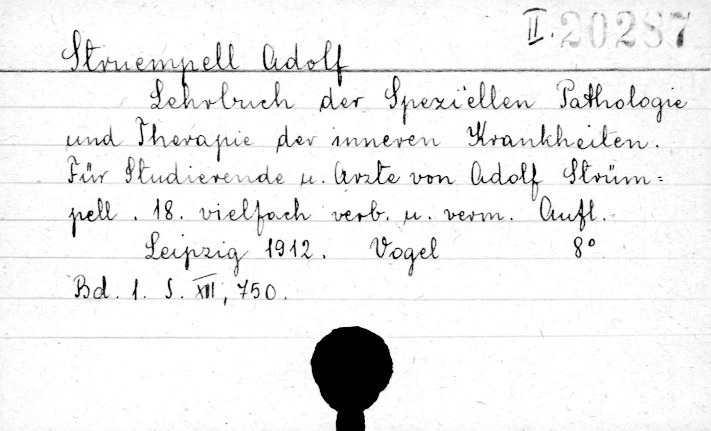 II. 20287
Struempell Adolf
Lehrbuch der Speziellen Pathologie
und Therapie der inneren Krankheiten.
Für Studierende u. Ärzte von Adolf Strüm=
pell. 18. vielfach verb. u. verm. Aufl.
Leipzig 1912. Vogel 8°
Bd. 1. S. XII, 750.